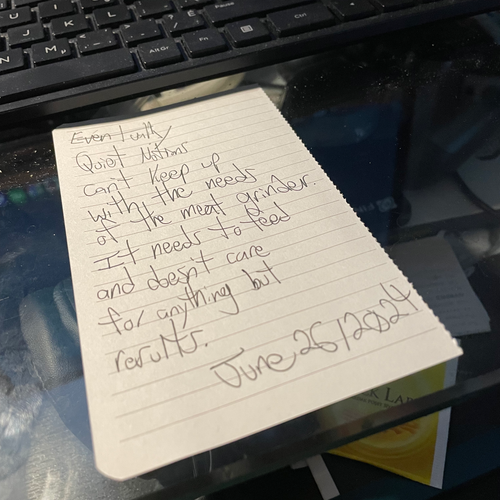 Pause
U
I
O
P
J
K
L
N
M
µ
Alt Gr
Fn
Ctrl
Eventually
Quiet Notions
can't keep up
with the needs
of the meat grinder.
It needs to feed
and doesn't care
for anything but
results.
June 26/2024
K LA